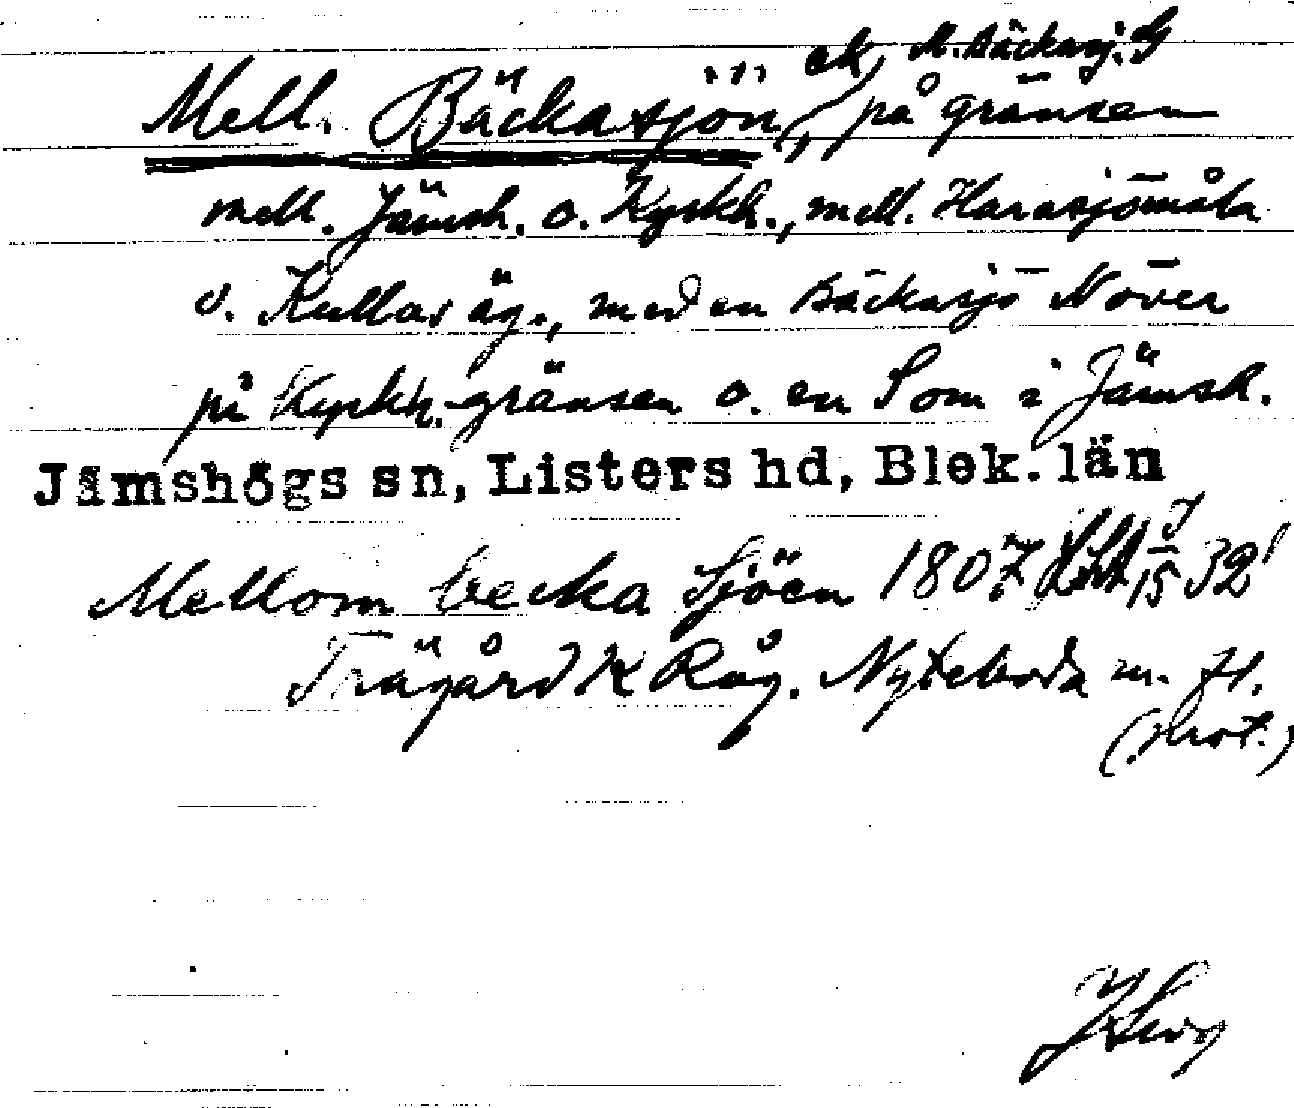 ek, M. Bäckasj. G
Mell. Bäckasjön, på gränsen
mell. Jämsh. o. Kyrkh., mell. Harasjömåla
o. Kullas äg., med en Bäckasjö Növer
på Kyrkh.-gränsen o. en Som i Jämsh.
Jämshögs sn, Listers hd, Blek. län
Mellom becka Sjöen 1807 15 32
Trägård K Råg. Nyteboda m. fl.